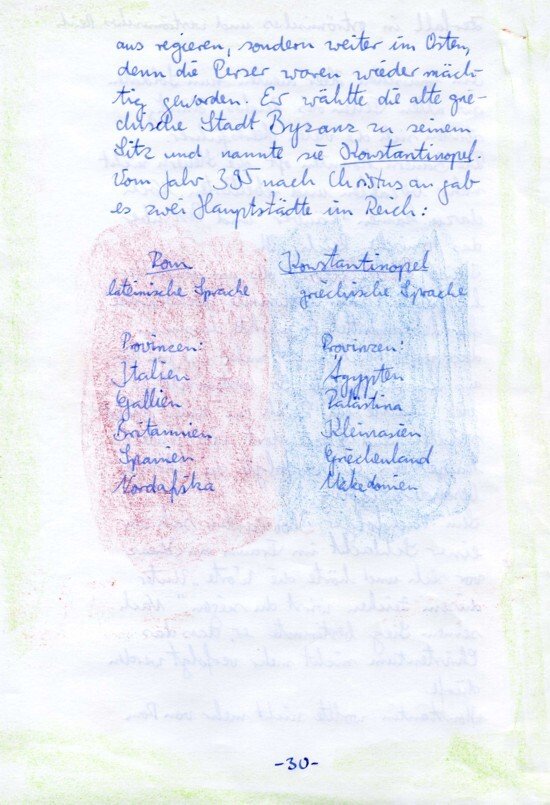 aus regieren, sondern weiter im Osten,
denn die Perser waren wieder mäch-
tig geworden. Er wählte die alte grie-
chische Stadt Byzanz zu seinem
Sitz und nannte sie Konstantinopel.
Vom Jahr 395 nach Christus an gab
es zwei Hauptstädte im Reich:
Rom
lateinische Sprache
Provinzen:
Italien
Gallien
Britannien
Spanien
Nordafrika
Konstantinopel
griechische Sprache
Provinzen:
Ägypten
Palästina
Kleinasien
Griechenland
Makedonien
-30-